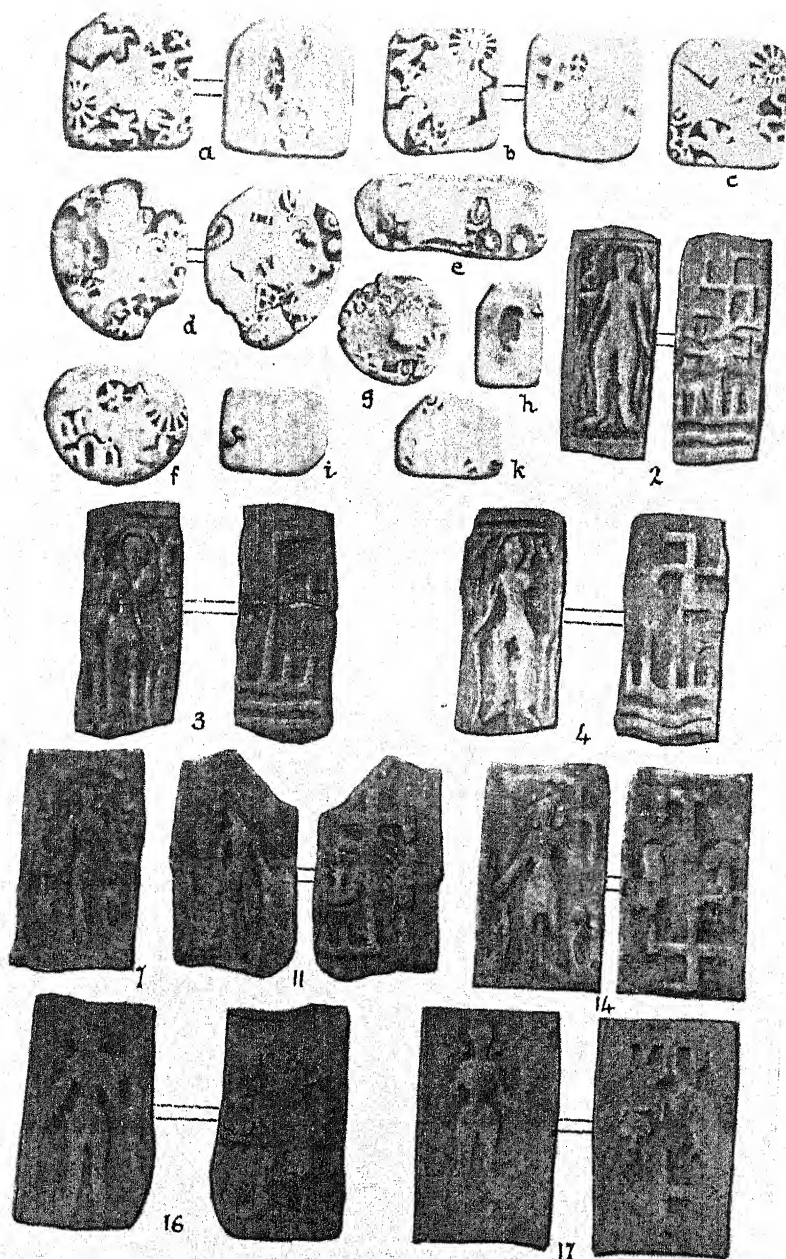 a
b
c
d
e
f
g
h
i
k
2
3
4
7
11
14
16
17